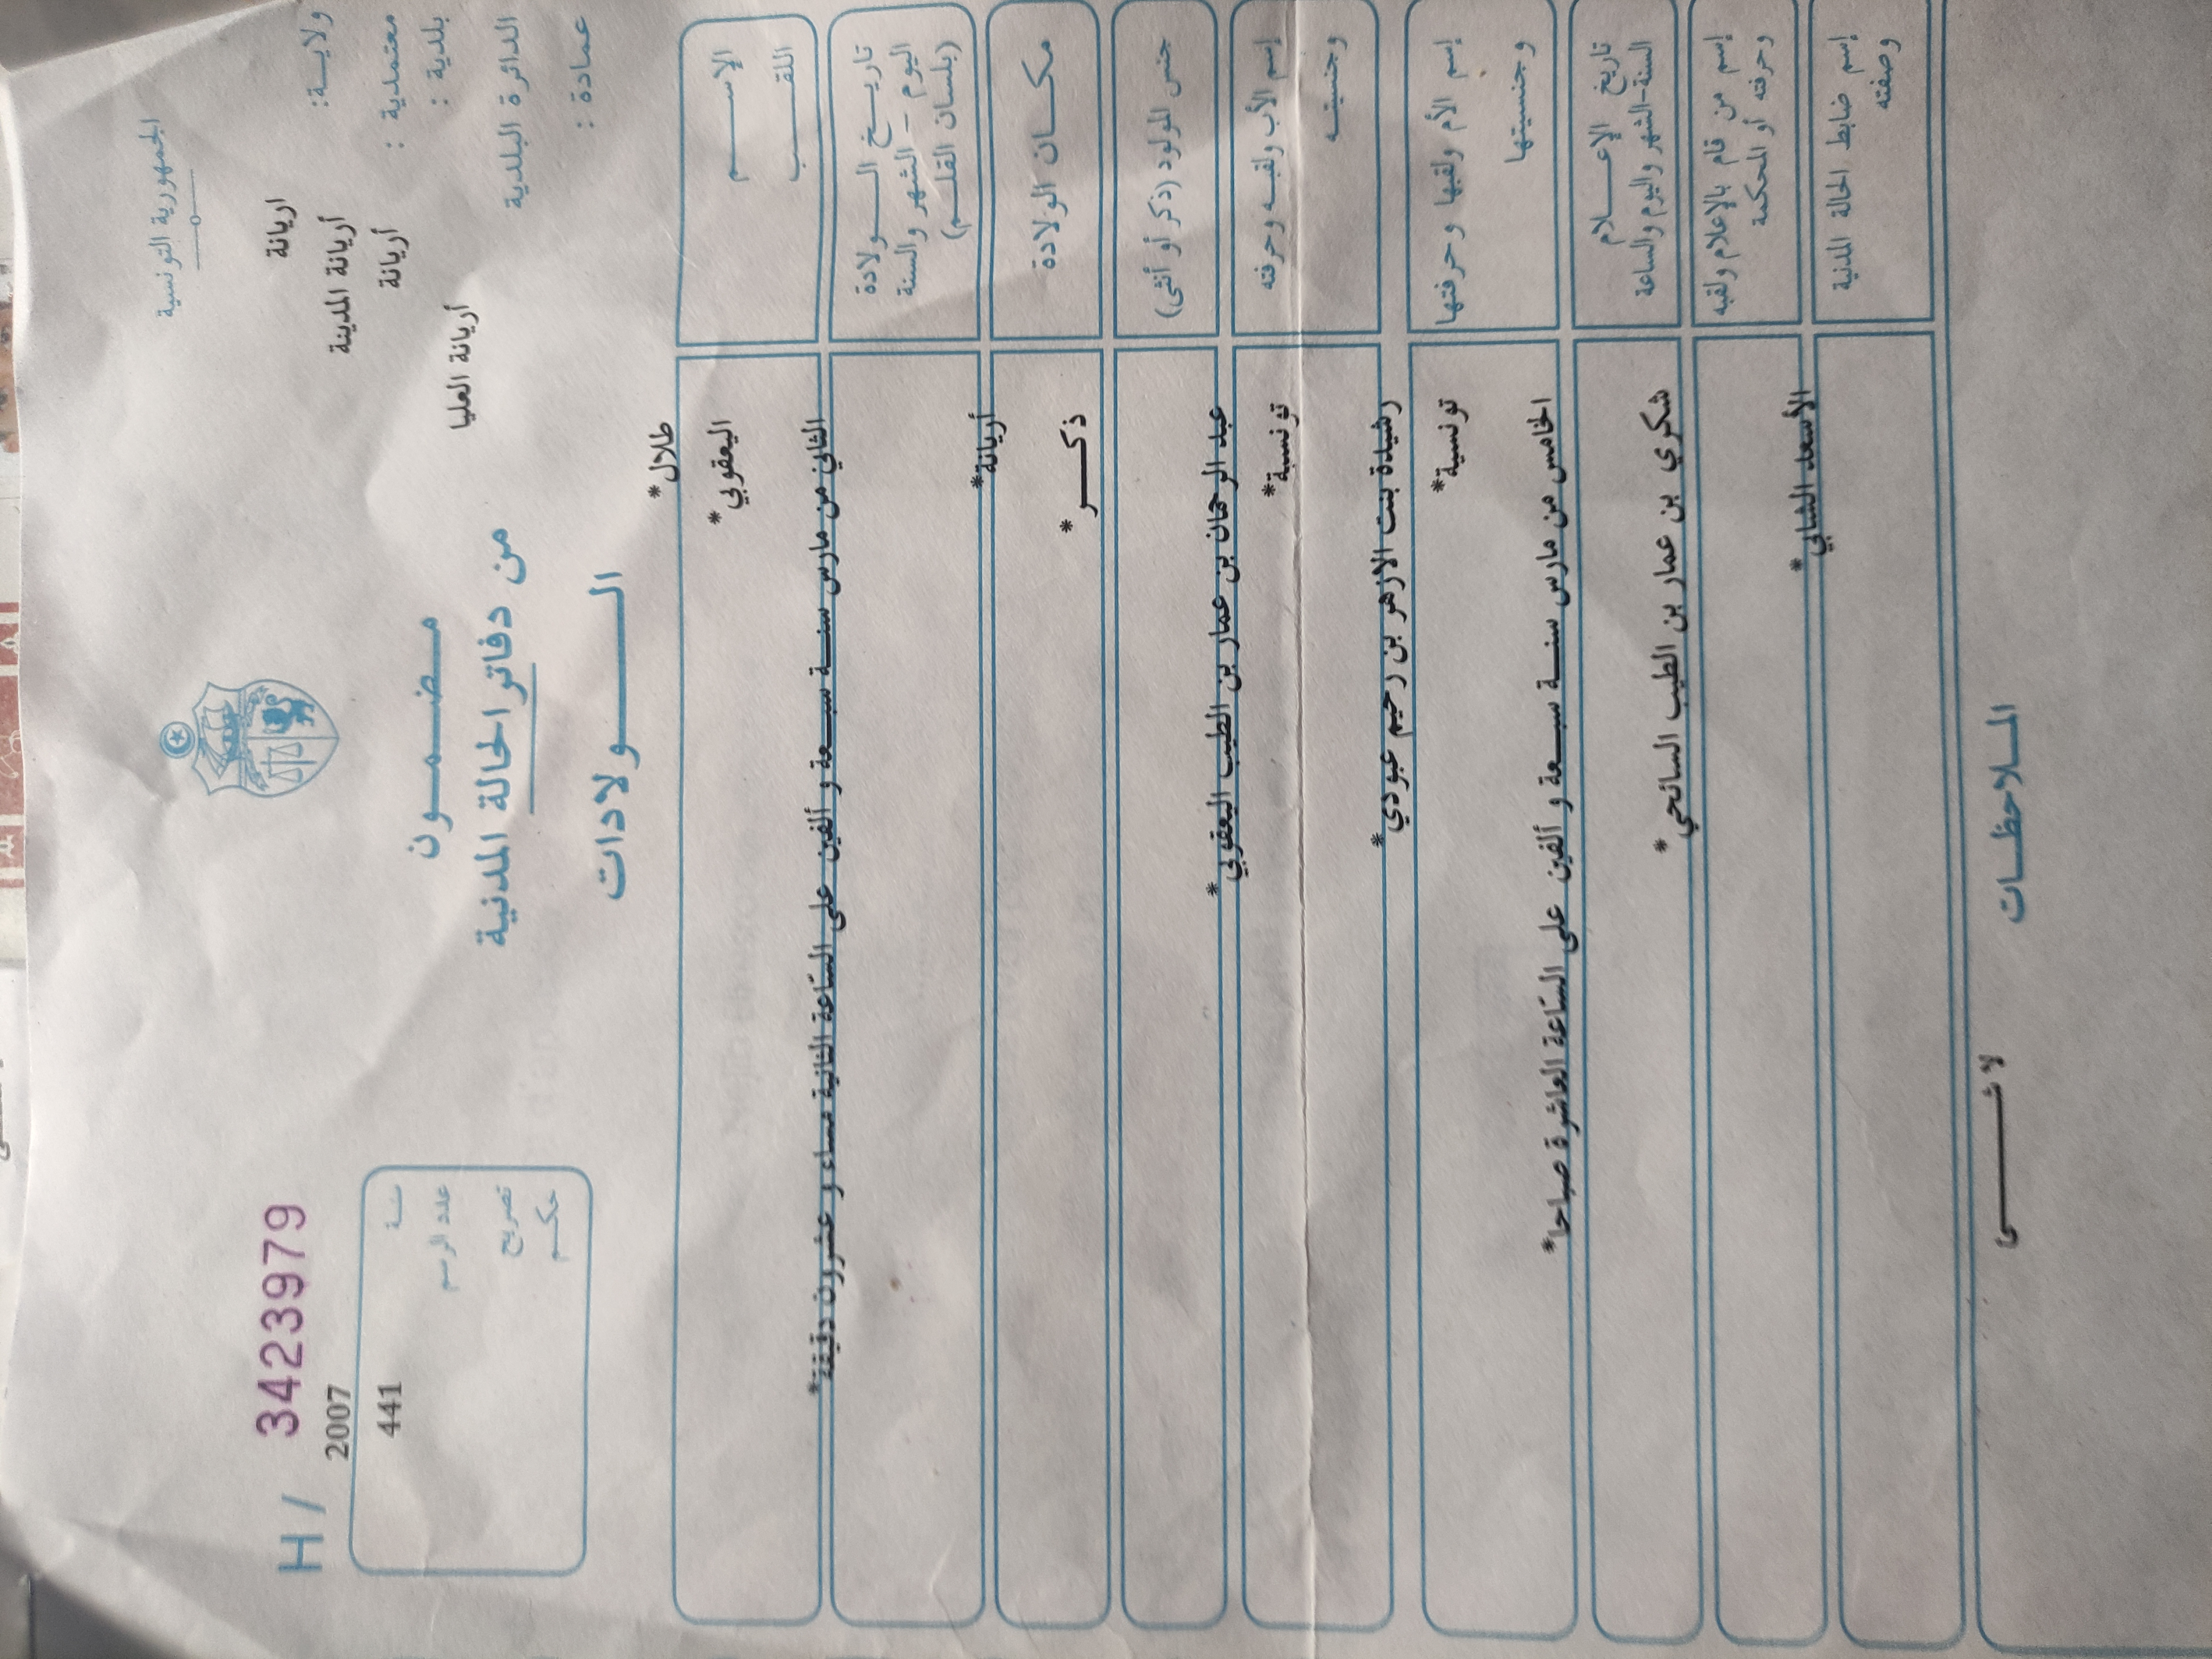 الجمهورية التونسية
ولايــة: اريانة
معتمدية : أريانة المدينة
بلدية : أريانة
الدائرة البلدية أريانة العليا
عمادة :
H / 3423979
2007
سنـة
441
عدد الرسم
تصريح
حكـم
مـضـمـون
من دفاتر الحالة المدنية
الـولادات
الإسـم
طلال*
اللقـب
اليعقوبي*
تاريـخ الـولادة
اليوم - الشهر والسنة
(بلسان القلـم)
الثاني من مارس سنـة سبـعة و ألفين على السّاعة الثانية مساء و عشرون دقيقة*
مكـان الولادة
أريانة*
جنس المولود (ذكر أو أنثى)
ذكـر*
إسم الأب ولقبـه وحرفته
وجنسيتـه
عبد الرحمان بن عمار بن الطيب اليعقوبي*
تونسية*
إسم الأم ولقبها وحرفتها
وجنسيتها
رشيدة بنت الازهر بن رحيم عبودي*
تونسية*
تاريخ الإعـلام
السنة-الشهر واليوم والساعة
الخامس من مارس سنـة سبـعة و ألفين على السّاعة العاشرة صباحا*
إسم من قام بالإعلام ولقبه
وحرفته أو المحكمة
شكري بن عمار بن الطيب السائحي*
إسم ضابط الحالة المدنية
وصفته
الأسعد الشابي*
المـلاحظـات
لا شـي